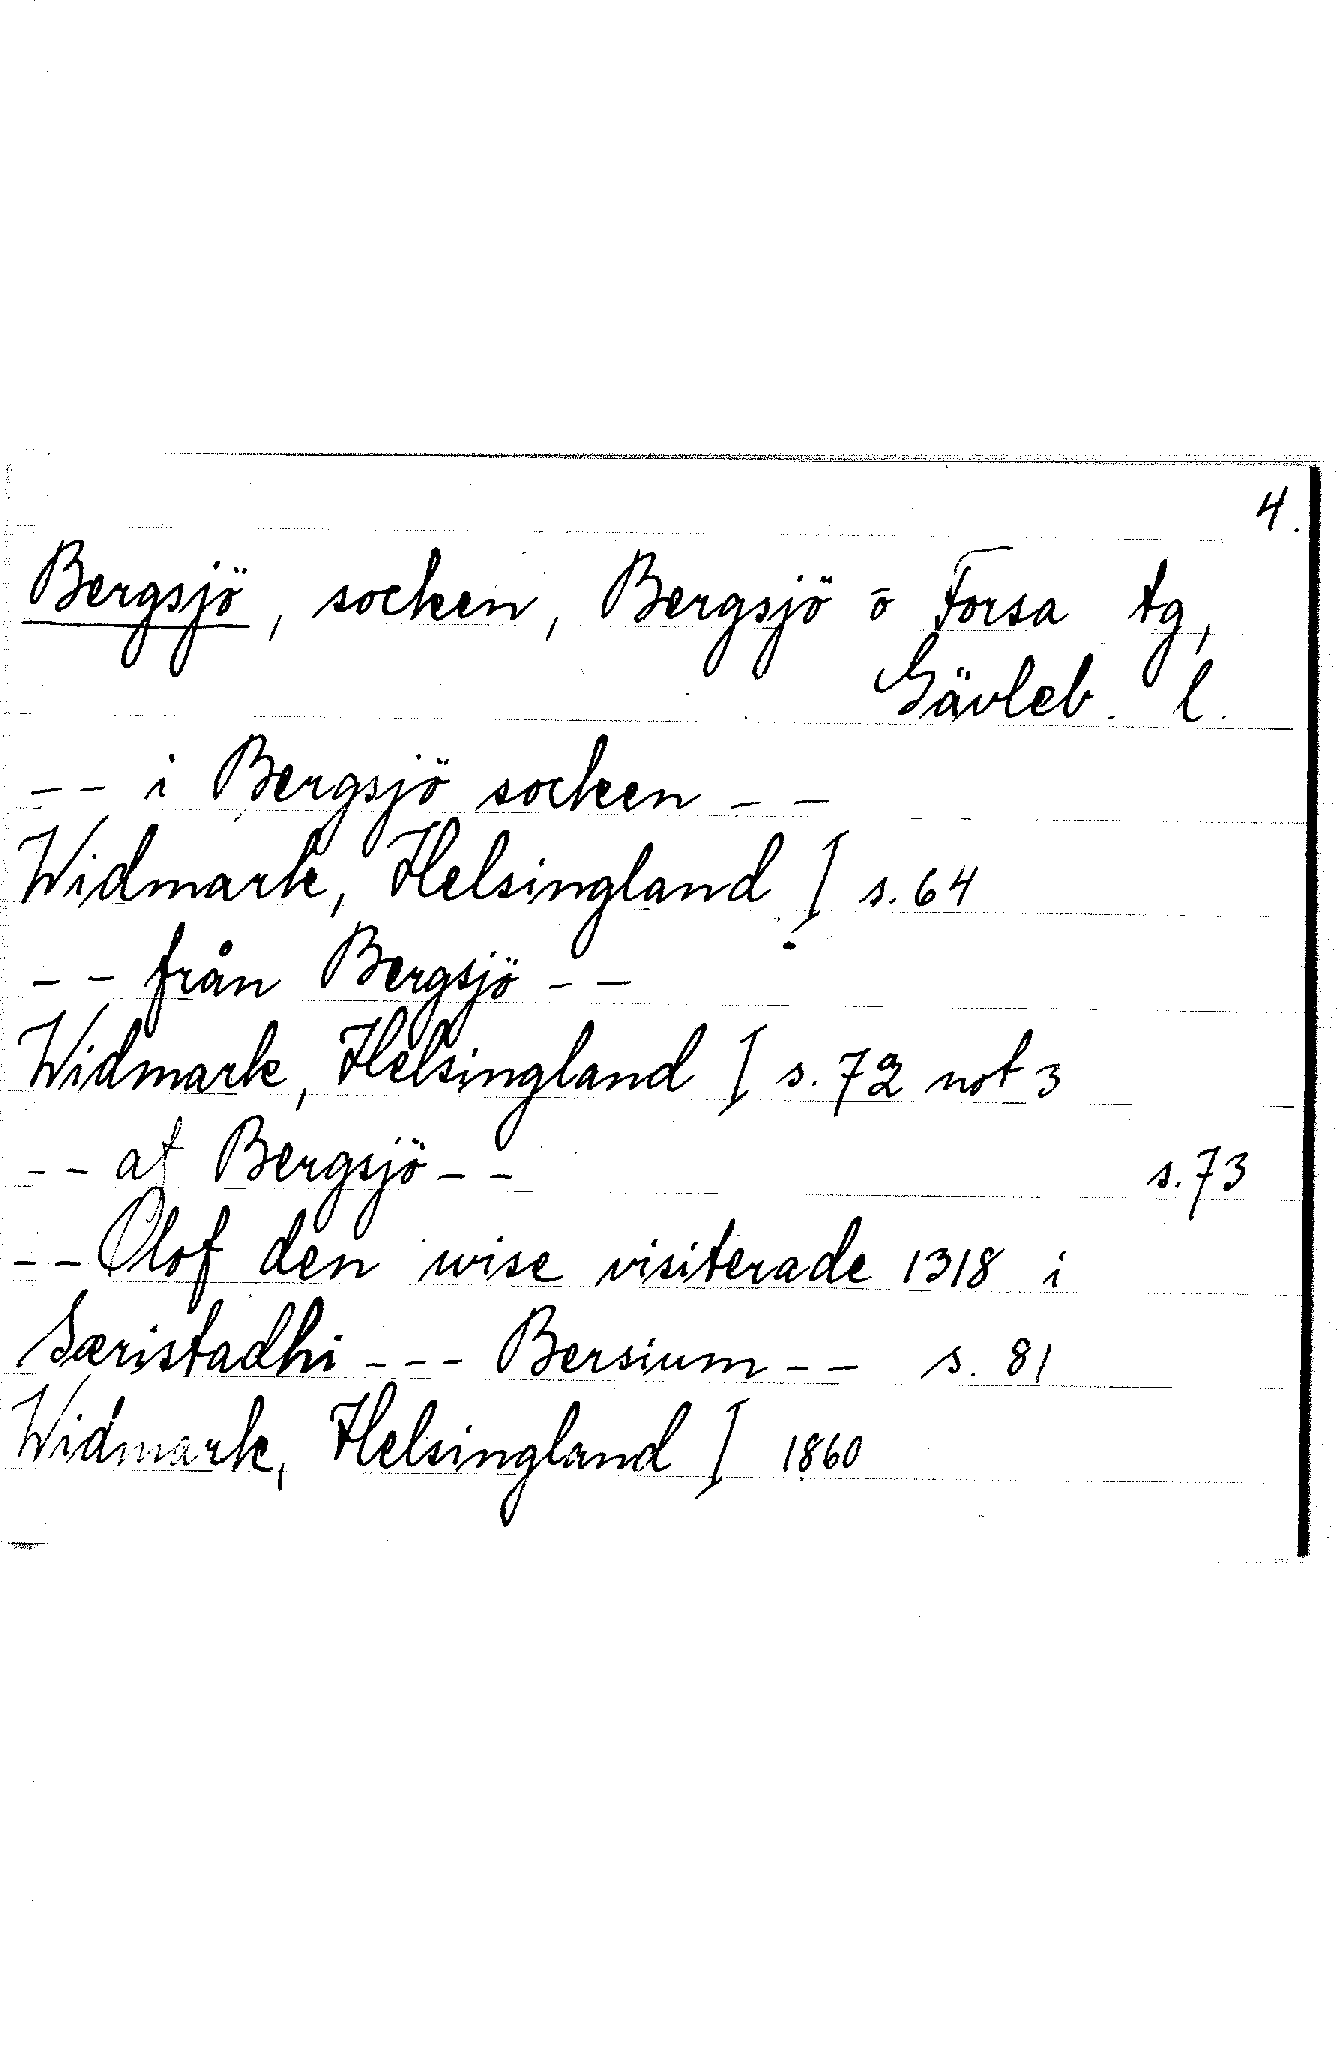 4.
Bergsjö, socken, Bergsjö o Forsa tg,
Gävleb. l.
-- i Bergsjö socken --
Widmark, Helsingland I s. 64
-- från Bergsjö --
Widmark, Helsingland I s. 72 not 3
-- at Bergsjö -- s. 73
-- Olof den wise visiterade 1318 i
Særistadhi --- Bersium -- s. 81
Widmark, Helsingland I 1860